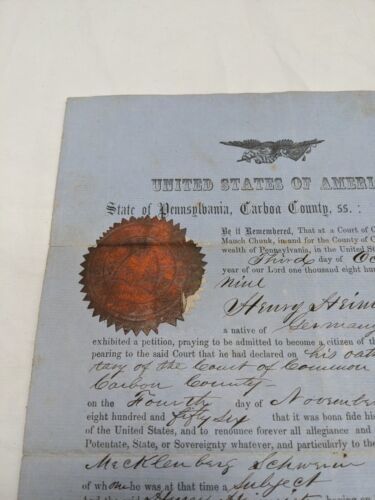 UNITED STATES OF AMER
State of Pennsylvania, Carboa County, ss. :
Be it Remembered, That at a Court of C
Mauch Chunk, in and for the County of C
wealth of Pennsylvania, in the United S
Third day of Oc
year of our Lord one thousand eight hund
nine
Henry Hein
a native of Germany
exhibited a petition, praying to be admitted to become a citizen of th
pearing to the said Court that he had declared on his oath
tary of the Court of Common
Carbon County
on the Fourth day of November
eight hundred and fifty six that it was bona fide his
of the United States, and to renounce forever all allegiance and
Potentate, State, or Sovereignty whatever, and particularly to the
Mecklenberg Schwerin
of whom he was at that time a Subject